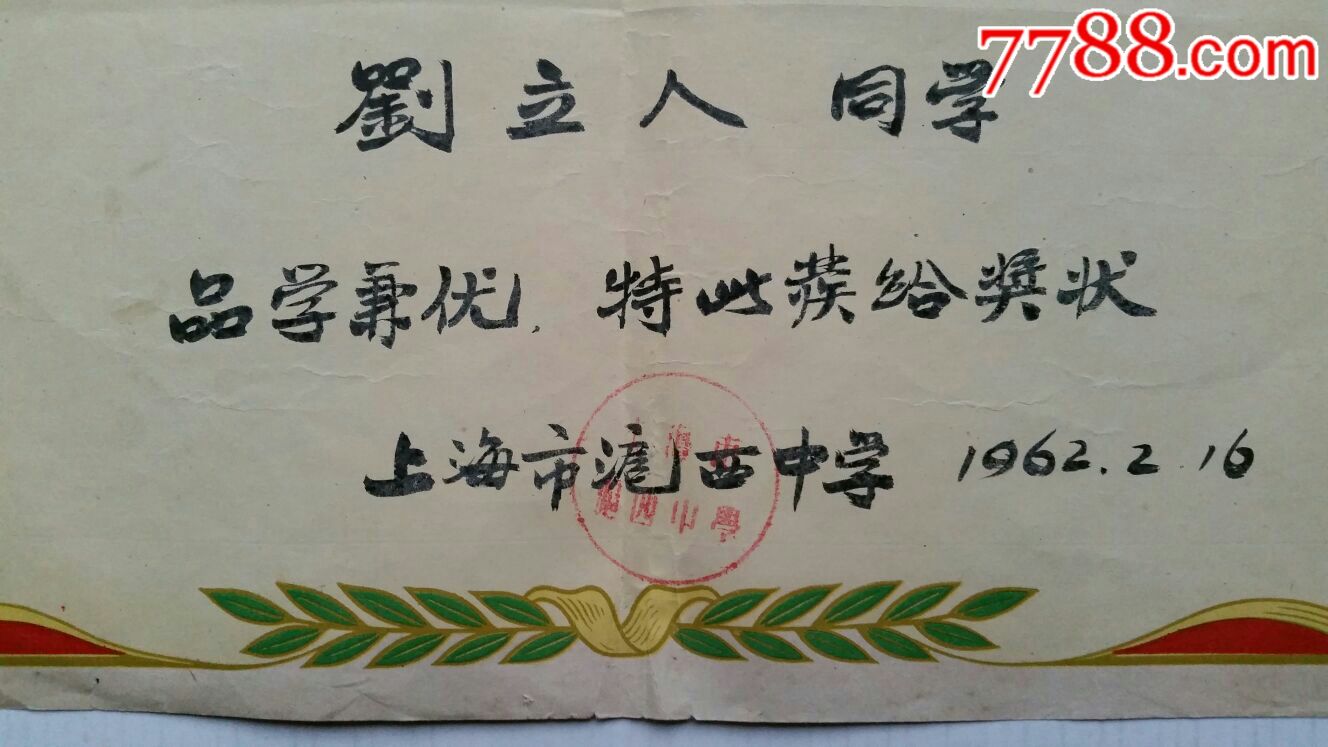 7788.com
劉立人 同学
品学兼优，特此发给奖状
上海市滬西中学 1962.2.16
上海市
滬西中學